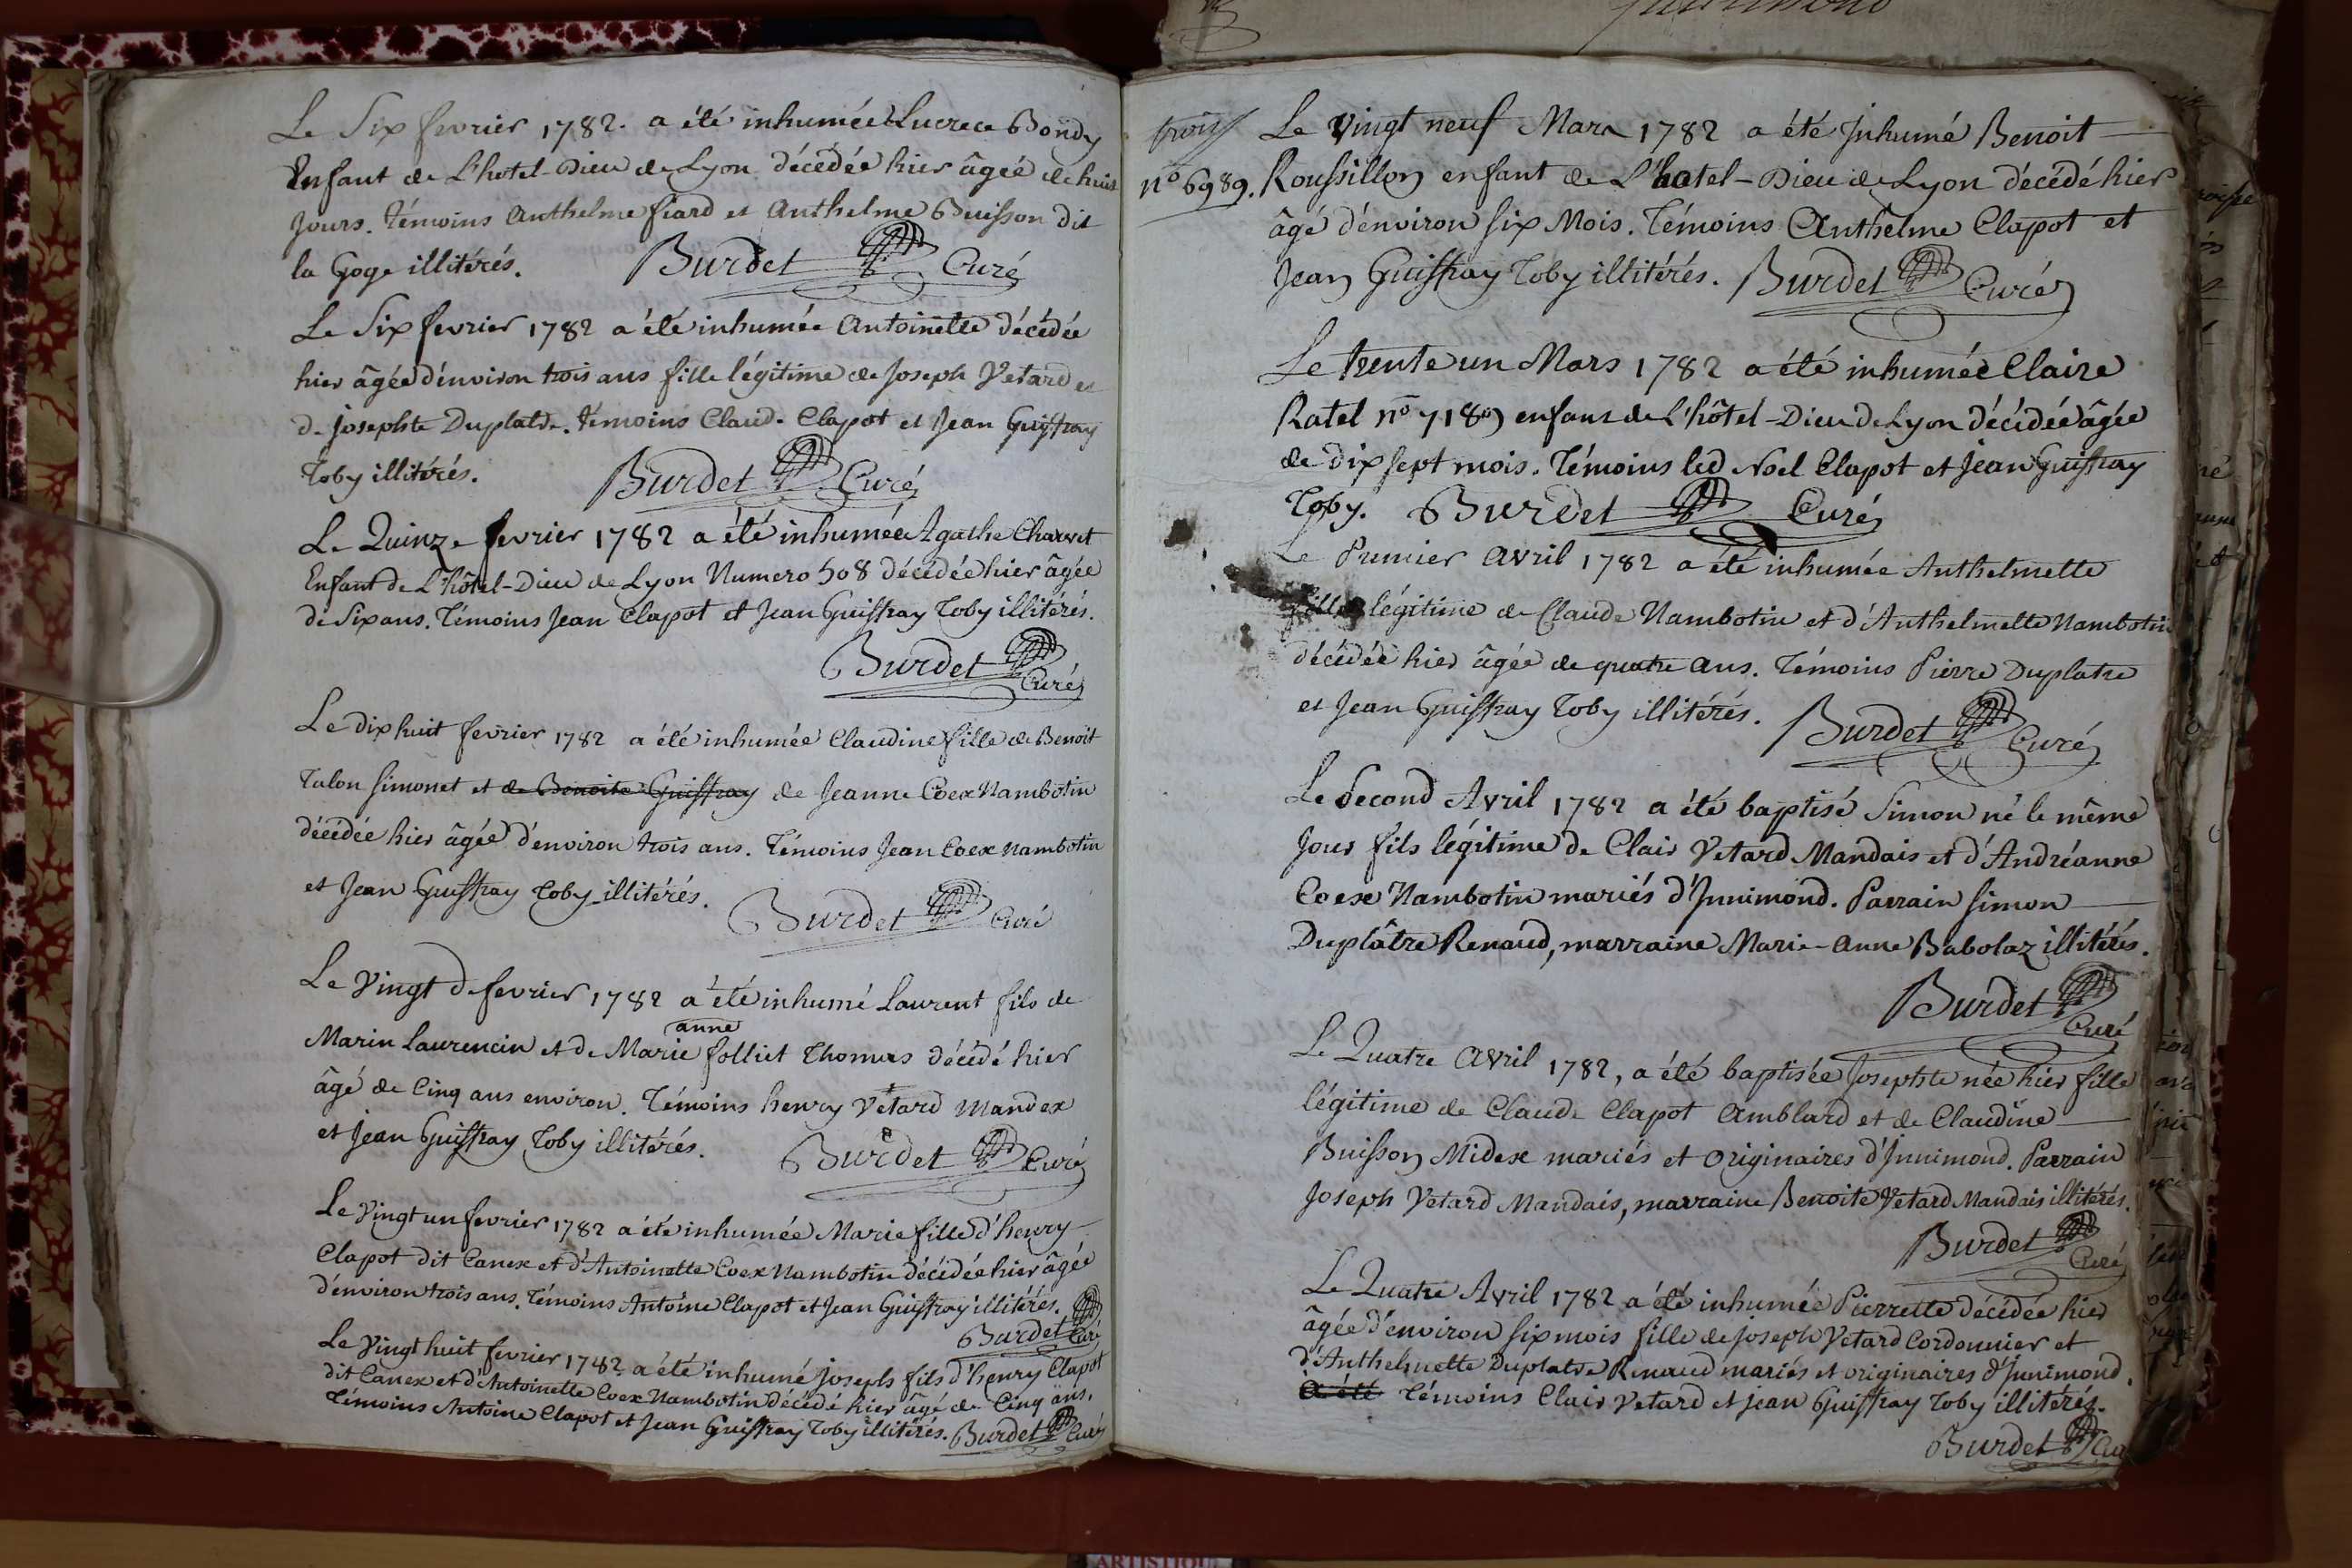 Le Six fevrier 1782. a été inhumée Lucrece Bondy
Enfant de L'hotel-Dieu de Lyon décédée hier âgée de huit
Jours. Témoins Anthelme fiard et Anthelme Buisson dit
la Goge illitérés. Burdet Curé
Le Six fevrier 1782 a été inhumée Antoinette décédée
hier âgée d'environ trois ans fille légitime de Joseph Vetard et
de Josephte Duplatre. témoins Claude Clapot et Jean Guiffray
Toby illitérés. Burdet Curé
Le Quinze fevrier 1782 a été inhumée Agathe Charvet
Enfant de L'hôtel-Dieu de Lyon Numero 508 décédée hier âgée
de Six ans. Témoins Jean Clapot et Jean Guiffray Toby illitérés.
Burdet Curé
Le dix huit fevrier 1782 a été inhumée Claudine fille de Benoit
Talon Simonet et de Benoite Guiffray de Jeanne Coex Nambotin
décédée hier âgée d'environ trois ans. Témoins Jean Coex Nambotin
et Jean Guiffray Toby illitérés. Burdet Curé
Le Vingt de fevrier 1782 a été inhumé Laurent fils de
anne
Marin Laurencin et de Marie folliet Thomas décédé hier
âgé de Cinq ans environ. Témoins henry Vétard Mandex
et Jean Guiffray Toby illitérés. Burdet Curé
Le Vingt un fevrier 1782 a été inhumée Marie fille d'henry
Clapot dit Canex et d'Antoinette Coex Nambotin décédée hier âgée
d'environ trois ans. Témoins Antoine Clapot et Jean Guiffray illitérés.
Burdet Curé
Le Vingt huit fevrier 1782 a été inhumé Joseph fils d'henry Clapot
dit Canex et d'Antoinette Coex Nambotin décédé hier âgé de Cinq ans.
Témoins Antoine Clapot et Jean Guiffray Toby illitérés. Burdet Curé
Le Vingt neuf Mars 1782 a été Inhumé Benoit
n° 6989. Roussillon enfant de L'hotel-Dieu de Lyon décédé hier
âgé d'environ six Mois. Témoins Anthelme Clapot et
Jean Guiffray Toby illitérés. Burdet Curé
Le trente un Mars 1782 a été inhumée Claire
Ratel n° enfant de L'hôtel-Dieu de Lyon décédée âgée
de dix sept mois. Témoins led Noel Clapot et Jean Guiffray
Toby. Burdet Curé
Le Premier Avril 1782 a été inhumée Anthelmette
fille légitime de Claude Nambotin et d'Anthelmette Nambotin
décédée hier âgée de quatre ans. Témoins Pierre Duplatre
et Jean Guiffray Toby illitérés. Burdet Curé
Le Second Avril 1782 a été baptisé Simon né le même
Jour fils légitime de Clair Vetard Mandais et d'Andréanne
Coex Nambotin mariés d'Innimond. Parrain Simon
Duplâtre Renaud, marraine Marie-Anne Babolaz illitérés.
Burdet Curé
Le Quatre Avril 1782, a été baptisée Josephte née hier fille
légitime de Claude Clapot Amblard et de Claudine
Buisson Midex mariés et Originaires d'Innimond. Parrain
Joseph Vetard Mandais, marraine Benoite Vetard Mandais illitérés.
Burdet Curé
Le Quatre Avril 1782 a été inhumée Pierrette décédée hier
âgée d'environ six mois fille de Joseph Vetard Cordonnier et
d'Anthelmette Duplatre Renaud mariés et originaires d'Innimond.
a été Témoins Clair Vetard et Jean Guiffray Toby illitérés.
Burdet Curé
ARTISTIQUE